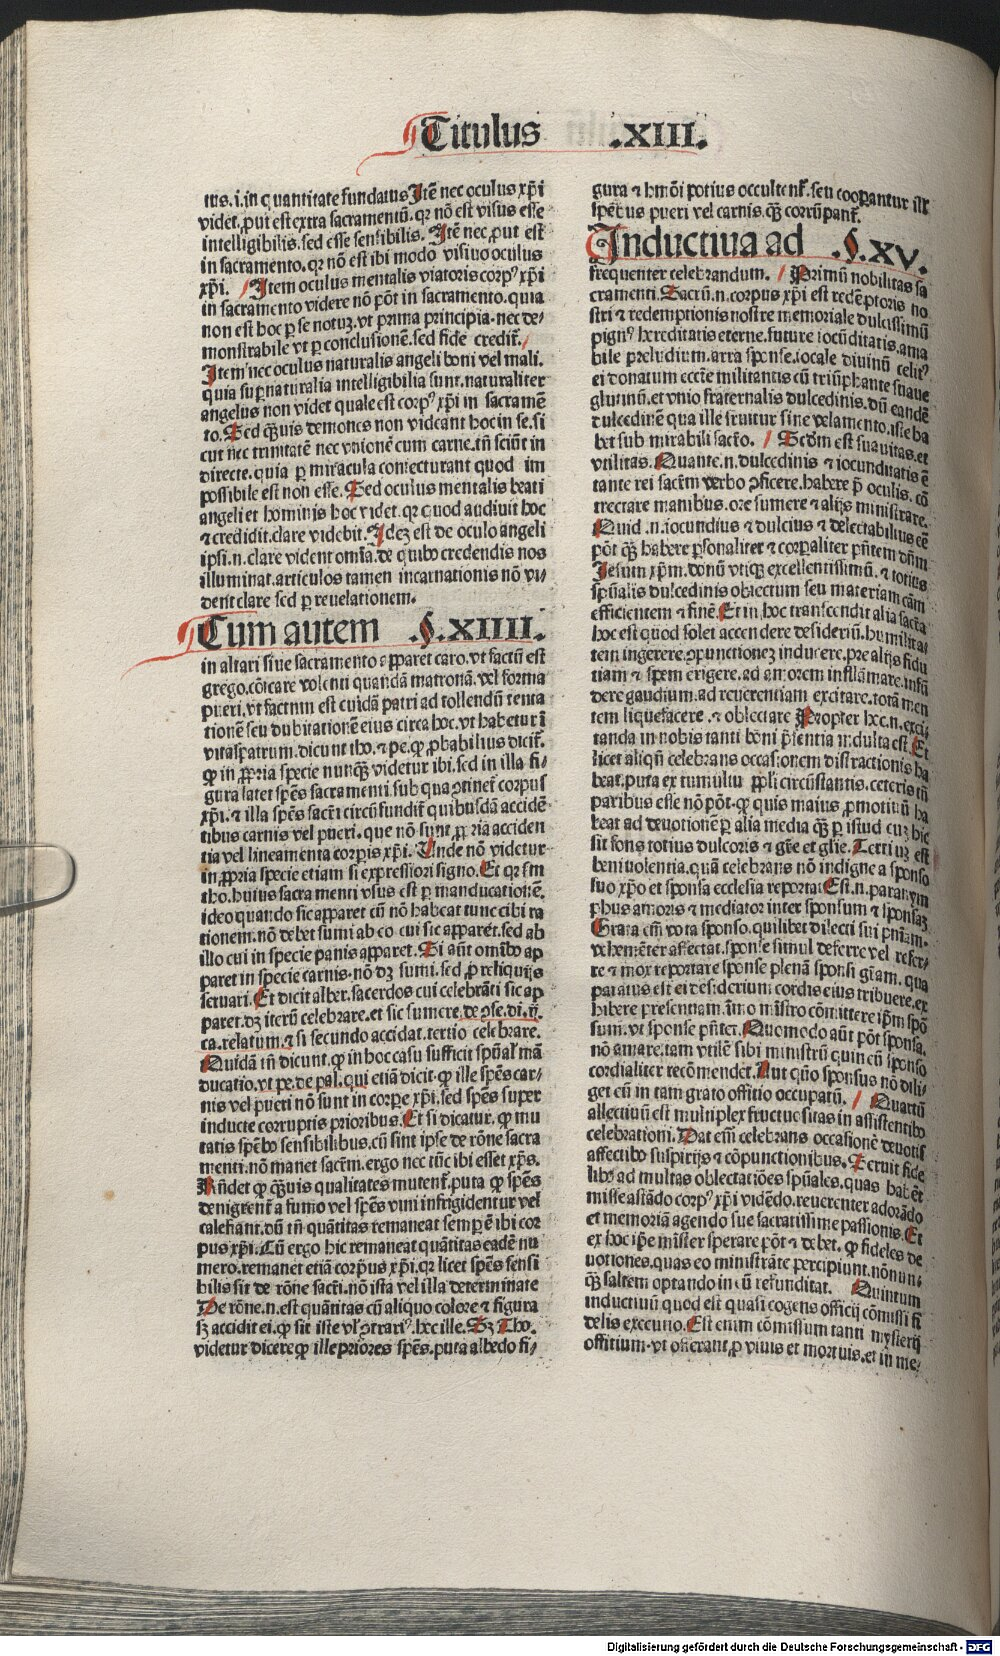 Titulus .XIII.
tus.i.in quantitate fundatus Itē nec oculus xp̄i
videt, put est extra sacramentū. qr nō est visus esse
intelligibilis. sed esse sensibilis. Itē nec, put est
in sacramento. qr nō est ibi modo visiuo oculus
xp̄i. / Item oculus mentalis viatoris corpꝰ xp̄i
in sacramento videre nō pōt in sacramento. quia
non est hoc p se notuʒ. vt prima principia. nec de/
monstrabile vt p conclusionē. sed fide credit̄. /
Item nec oculus naturalis angeli boni vel mali.
quia supnaturalia intelligibilia sunt. naturaliter
angelus non videt quale est corpꝰ xp̄i in sacramē
to. Sed q̄̄uis demones non videant hoc in se. si
cut nec trinitatē nec vnionē cum carne. tn̄ sciūt in
directe. quia p miracula coniecturant quod im
possibile est non esse. Sed oculus mentalis beati
angeli et hominis hoc videt. qr quod audiuit hoc
⁊ credidit. clare videbit. Ideʒ est de oculo angeli
ipsi.n. clare vident oīa. de quibꝰ credendis nos
illuminat. articulos tamen incarnationis nō vi/
dent clare sed p reuelationem.
Cum autem .§.XIIII.
in altari siue sacramento apparet caro. vt factū est
grego. cōicare volenti quandā matronā. vel forma
pueri. vt factum est cuidā patri ad tollendū tenta
tionē seu dubitationē eius circa hoc. vt habetur ī
vitaspatrum. dicunt tho. ⁊ pe. ꝙ pbabilius dicit̄.
ꝙ in ppria specie nunq̄̄ videtur ibi. sed in illa fi/
gura latet spēs sacramenti sub qua ↄtinet̄ corpus
xp̄i. ⁊ illa spēs sacrī circūfundit̄ quibusdā accidē
tibus carnis vel pueri. que nō sunt ppria acciden
tia vel lineamenta corpis xp̄i. Unde nō videtur
in ppria specie etiam si expressiori signo. Et qr sm
tho. huius sacramenti vsus est p manducationē.
ideo quando sic apparet cū nō habeat tunc cibi ra
tionem. nō debet sumi ab eo cui sic apparet. sed ab
illo cui in specie panis apparet. Si aūt omībꝰ ap
paret in specie carnis. nō dʒ sumi. sed p reliquijs
seruari. Et dicit alber. sacerdos cui celebrāti sic ap
paret. dʒ iterū celebrare. et sic sumere. de ↄse. di. ij.
ca. relatum. ⁊ si secundo accidat. tertio celebrare.
Quidā tn̄ dicunt. ꝙ in hoc casu sufficit spūal̄ mā
ducatio. vt pe. de pal. qui etiā dicit. ꝙ ille spēs car/
nis vel pueri nō sunt in corpe xp̄i. sed spēs super
inducte corruptis prioribus. Et si dicatur. ꝙ mu
tatis spēbꝰ sensibilibus. cū sint ipse de rōne sacra
menti. nō manet sacrm̄. ergo nec tūc ibi esset xp̄s.
Rn̄det ꝙ q̄̄uis qualitates mutent̄. puta ꝙ spēs
denigrent̄ a fumo vel spēs vini infrigidentur vel
calefiant. dū tn̄ quātitas remaneat semp ē ibi cor
pus xp̄i. Cū ergo hic remaneat quātitas eadē nu
mero. remanet etiā corpus xp̄i. qr licet spēs sensi
bilis sit de rōne sacrī. nō ista vel illa determinate
De rōne.n. est quātitas cū aliquo colore ⁊ figura
sʒ accidit ei. ꝙ sit iste vl̄ ↄtrariꝰ. hec ille. Sʒ Tho.
videtur dicere ꝙ ille priores spēs. puta albedo fi/
gura ⁊ hmōi potius occultent̄. seu cooperantur
spēbus pueri vel carnis. q̄̄ corrūpant̄.
Inductiua ad .§.XV.
frequenter celebrandum. / Primū nobilitas sa
cramenti. Sacrū.n. corpus xp̄i est redēptoris no
stri ⁊ redemptionis nostre memoriale dulcissimū
pignꝰ hereditatis eterne. future iocūditatis. ama
bile preludium. arra sponse. iocale diuinū celitꝰ
ei donatum eccīe militantis cū triūphante suaue
glutinū. et vnio fraternalis dulcedinis. dū eandē
dulcedinē qua illa fruitur sine velamento. ista ha
bet sub mirabili sacrō. / Secdm est suauitas. et
vtilitas. Quante.n. dulcedinis ⁊ iocunditatis ē
tante rei sacrm̄ verbo ↄficere. habere p̄ oculis. cō
trectare manibus. ore sumere ⁊ alijs ministrare.
Quid.n. iocundius ⁊ dulcius ⁊ delectabilius eē
pōt q̄̄ habere psonaliter ⁊ corpaliter pn̄tem dn̄m
Iesum xp̄m. donū vtiqʒ excellentissimū. ⁊ totius
spūalis dulcedinis obiectum seu materiam cām
efficientem ⁊ finē. Et in hoc transcendit alia sacrā
hoc est quod solet accendere desideriū. humilita/
tem ingerere. ↄpunctioneʒ inducere. pre alijs fidu
tiam ⁊ spem erigere. ad amorem inflāmare. infū
dere gaudium. ad reuerentiam excitare. totā men
tem liquefacere. ⁊ oblectare Propter hec.n. exci/
tanda in nobis tanti boni p̄sentia indulta est. Et
licet aliqn̄ celebrans occasionem distractionis ha
beat. puta ex tumultu ppli circūstantis. ceteris tn̄
paribus esse nō pōt. ꝙ quis maius pmotiuū ha
beat ad deuotionē p alia media q̄̄ p istud cuʒ hic
sit fons totius dulcoris ⁊ grē et glīe. Tertiuʒ est
beniuolentia. quā celebrans nō indigne a sponso
suo xp̄o et sponsa ecclesia reportat. Est.n. paranym
phus amoris ⁊ mediator inter sponsum ⁊ sponsaʒ
Grata em̄ vota sponso. quilibet dilecti sui pn̄iam.
vehemēter affectat. sponse simul deferre vel refer/
re ⁊ mox reportare sponse plenā sponsi grām. qua
paratus est ei desiderium cordis eius tribuere. ex
hibere presentiam. īmo mīstro cōmittere ipm̄ spō
sum. vt sponse pn̄tet. Quomodo aūt pōt sponsa.
nō amare. tam vtilē sibi ministrū quin eū sponso
cordialiter recōmendet. Aut quō sponsus nō dili/
get eū in tam grato offitio occupatū. / Quartū
allectiuū est multiplex fructuositas in assistentibꝰ
celebrationi. Dat em̄ celebrans occasionē deuotis
affectibꝰ suspirijs ⁊ cōpunctionibus. Seruit fide
libꝰ ad multas oblectatiōes spūales. quas habēt
misse astādo corpꝰ xp̄i vidēdo. reuerenter adorādo
et memoriā agendo sue sacratissime passionis. Et
ex hoc ip̄e mister sperare pōt ⁊ debet. ꝙ fideles de
uotiones. quas eo ministrāte percipiunt. nōnun/
q̄̄ saltem optando in eū refunditat. Quintum
inductiuū quod est quasi cogens officij cōmissi fi
delis executio. Est enim cōmissum tanti mysterij
offitium. vt offerant p viuis et mortuis. et in me/
Digitalisierung gefördert durch die Deutsche Forschungsgemeinschaft - DFG